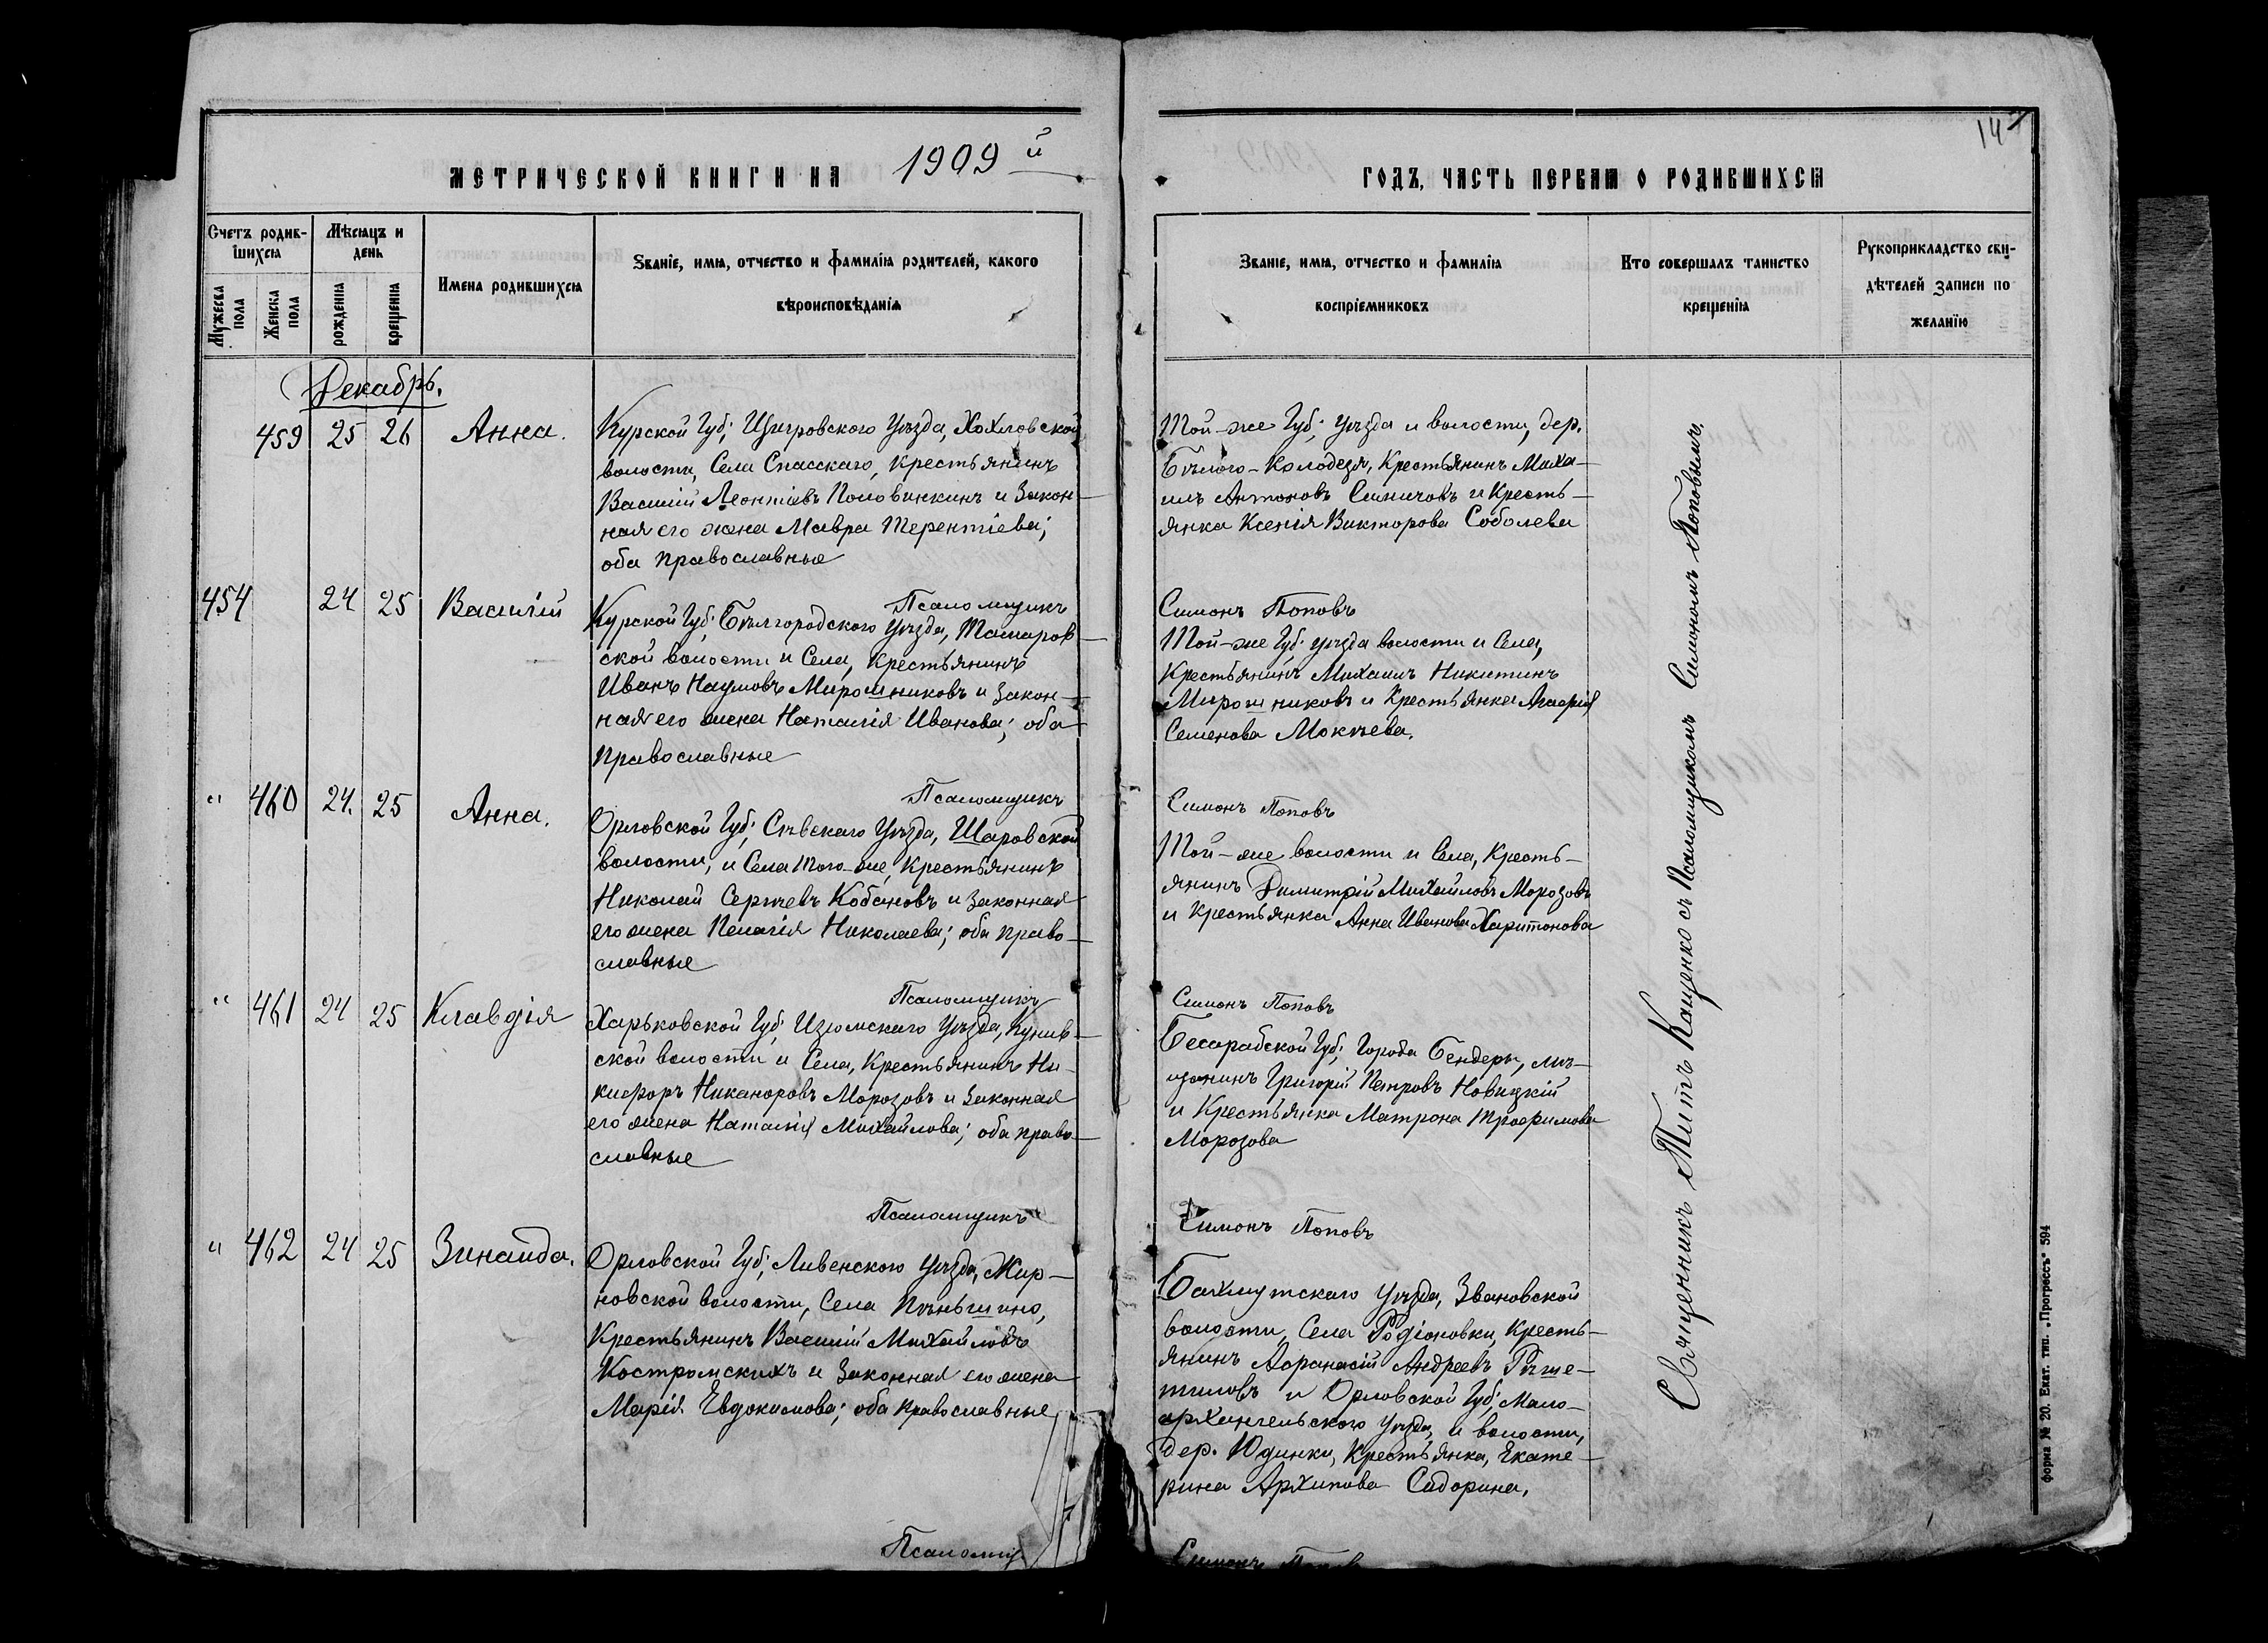 МЕТРИЧЕСКОЙ КНИГИ НА 1909й
Счетъ родившихся
Мѣсяцъ и день
Имена родившихся
Званіе, имя, отчество и фамилія родителей, какого
вѣроисповѣданія
Мужеска пола
Женска пола
рожденія
крещенія
Декабрь.
459 25 26 Анна.
Курской Губ; Щигровского Уѣзда, Хохловской
волости, Села Спасскаго, Крестьянинъ
Василій Леонтіевъ Половинкинъ и Закон-
ная его жена Мавра Терентіева;
оба православные
Псаломщикъ
454 24 25 Василій
Курской Губ; Бѣлгородского Уѣзда, Томаров-
ской волости и Села, Крестьянинъ
Иванъ Наумовъ Мирошниковъ и Закон-
ная его жена Наталія Иванова; оба
Православные
Псаломщикъ
" 460 24. 25 Анна.
Орловской Губ; Сѣвскаго Уѣзда, Шаровской
волости, и Села того-же, Крестьянинъ
Николай Сергѣевъ Кобановъ и Законная
его жена Пелагія Николаева; оба право-
славные
Псаломщикъ
" 461 24 25 Клавдія
Харьковской Губ; Изюмскаго Уѣзда,
ской волости и Села, Крестьянинъ Ни-
кифоръ Никаноровъ Морозовъ и Законная
его жена Наталія Михайлова; оба право-
славные
Псаломщикъ
" 462 24 25 Зинаида.
Орловской Губ; Ливенского Уѣзда, Жир-
новской волости, Села Пѣньшино,
Крестьянинъ Василій Михайловъ
Костромскихъ и Законная его жена
Марія Евдокимова; оба православные
Псаломщ
147
ГОДЪ, ЧАСТЬ ПЕРВАЯ О РОДИВШИХСЯ
Званіе, имя, отчество и фамилія
воспріемниковъ
Кто совершалъ таинство
крещенія
Рукоприкладство сви-
дѣтелей записи по
желанію
Той-же Губ; Уѣзда и волости, дер.
Бѣлого-Колодезя, Крестьянинъ Миха-
илъ Антоновъ Симичовъ и Кресть-
янка Ксенія Викторова Соболева
Симонъ Поповъ
Той-же Губ. уѣзда волости и Села,
Крестьянинъ Михаилъ Никитинъ
Мирошниковъ и Крестьянка
Семенова Мокѣева.
Симонъ Поповъ
Той-же волости и Села, Кресть-
янинъ Димитрій Михайловъ Морозовъ
и Крестьянка Анна Иванова Харитонова
Симонъ Поповъ
Бесарабской Губ; Города Бендеры, мѣ-
щанинъ Григорій Петровъ Новицкій
и Крестьянка Матрона Трофимова
Морозова
Симонъ Поповъ
Бахмутскаго Уѣзда, Звановской
волости, Села Родіоновки, Кресть-
янинъ Афанасій Андреевъ Рѣше-
тиловъ и Орловской Губ; Мало-
архангельского Уѣзда, и волости,
дер. Юдинки, Крестьянка, Екате-
рина Архипова Сидорина.
Симонъ Попов
Священникъ Титъ Кащенко съ Псаломщикомъ Симономъ Поповымъ.
форма № 20. Екат. тип. „Прогрессъ" 594